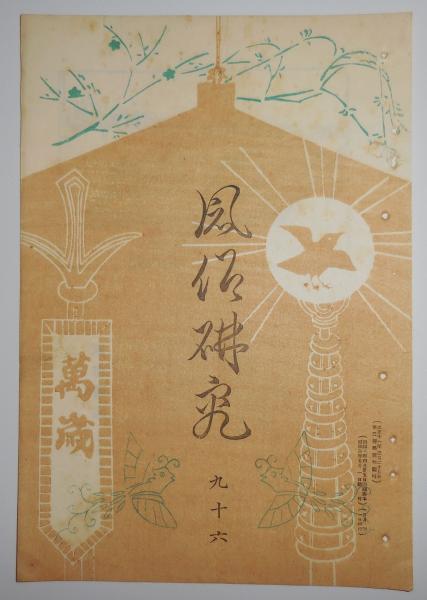 風俗研究
九十六
萬歳